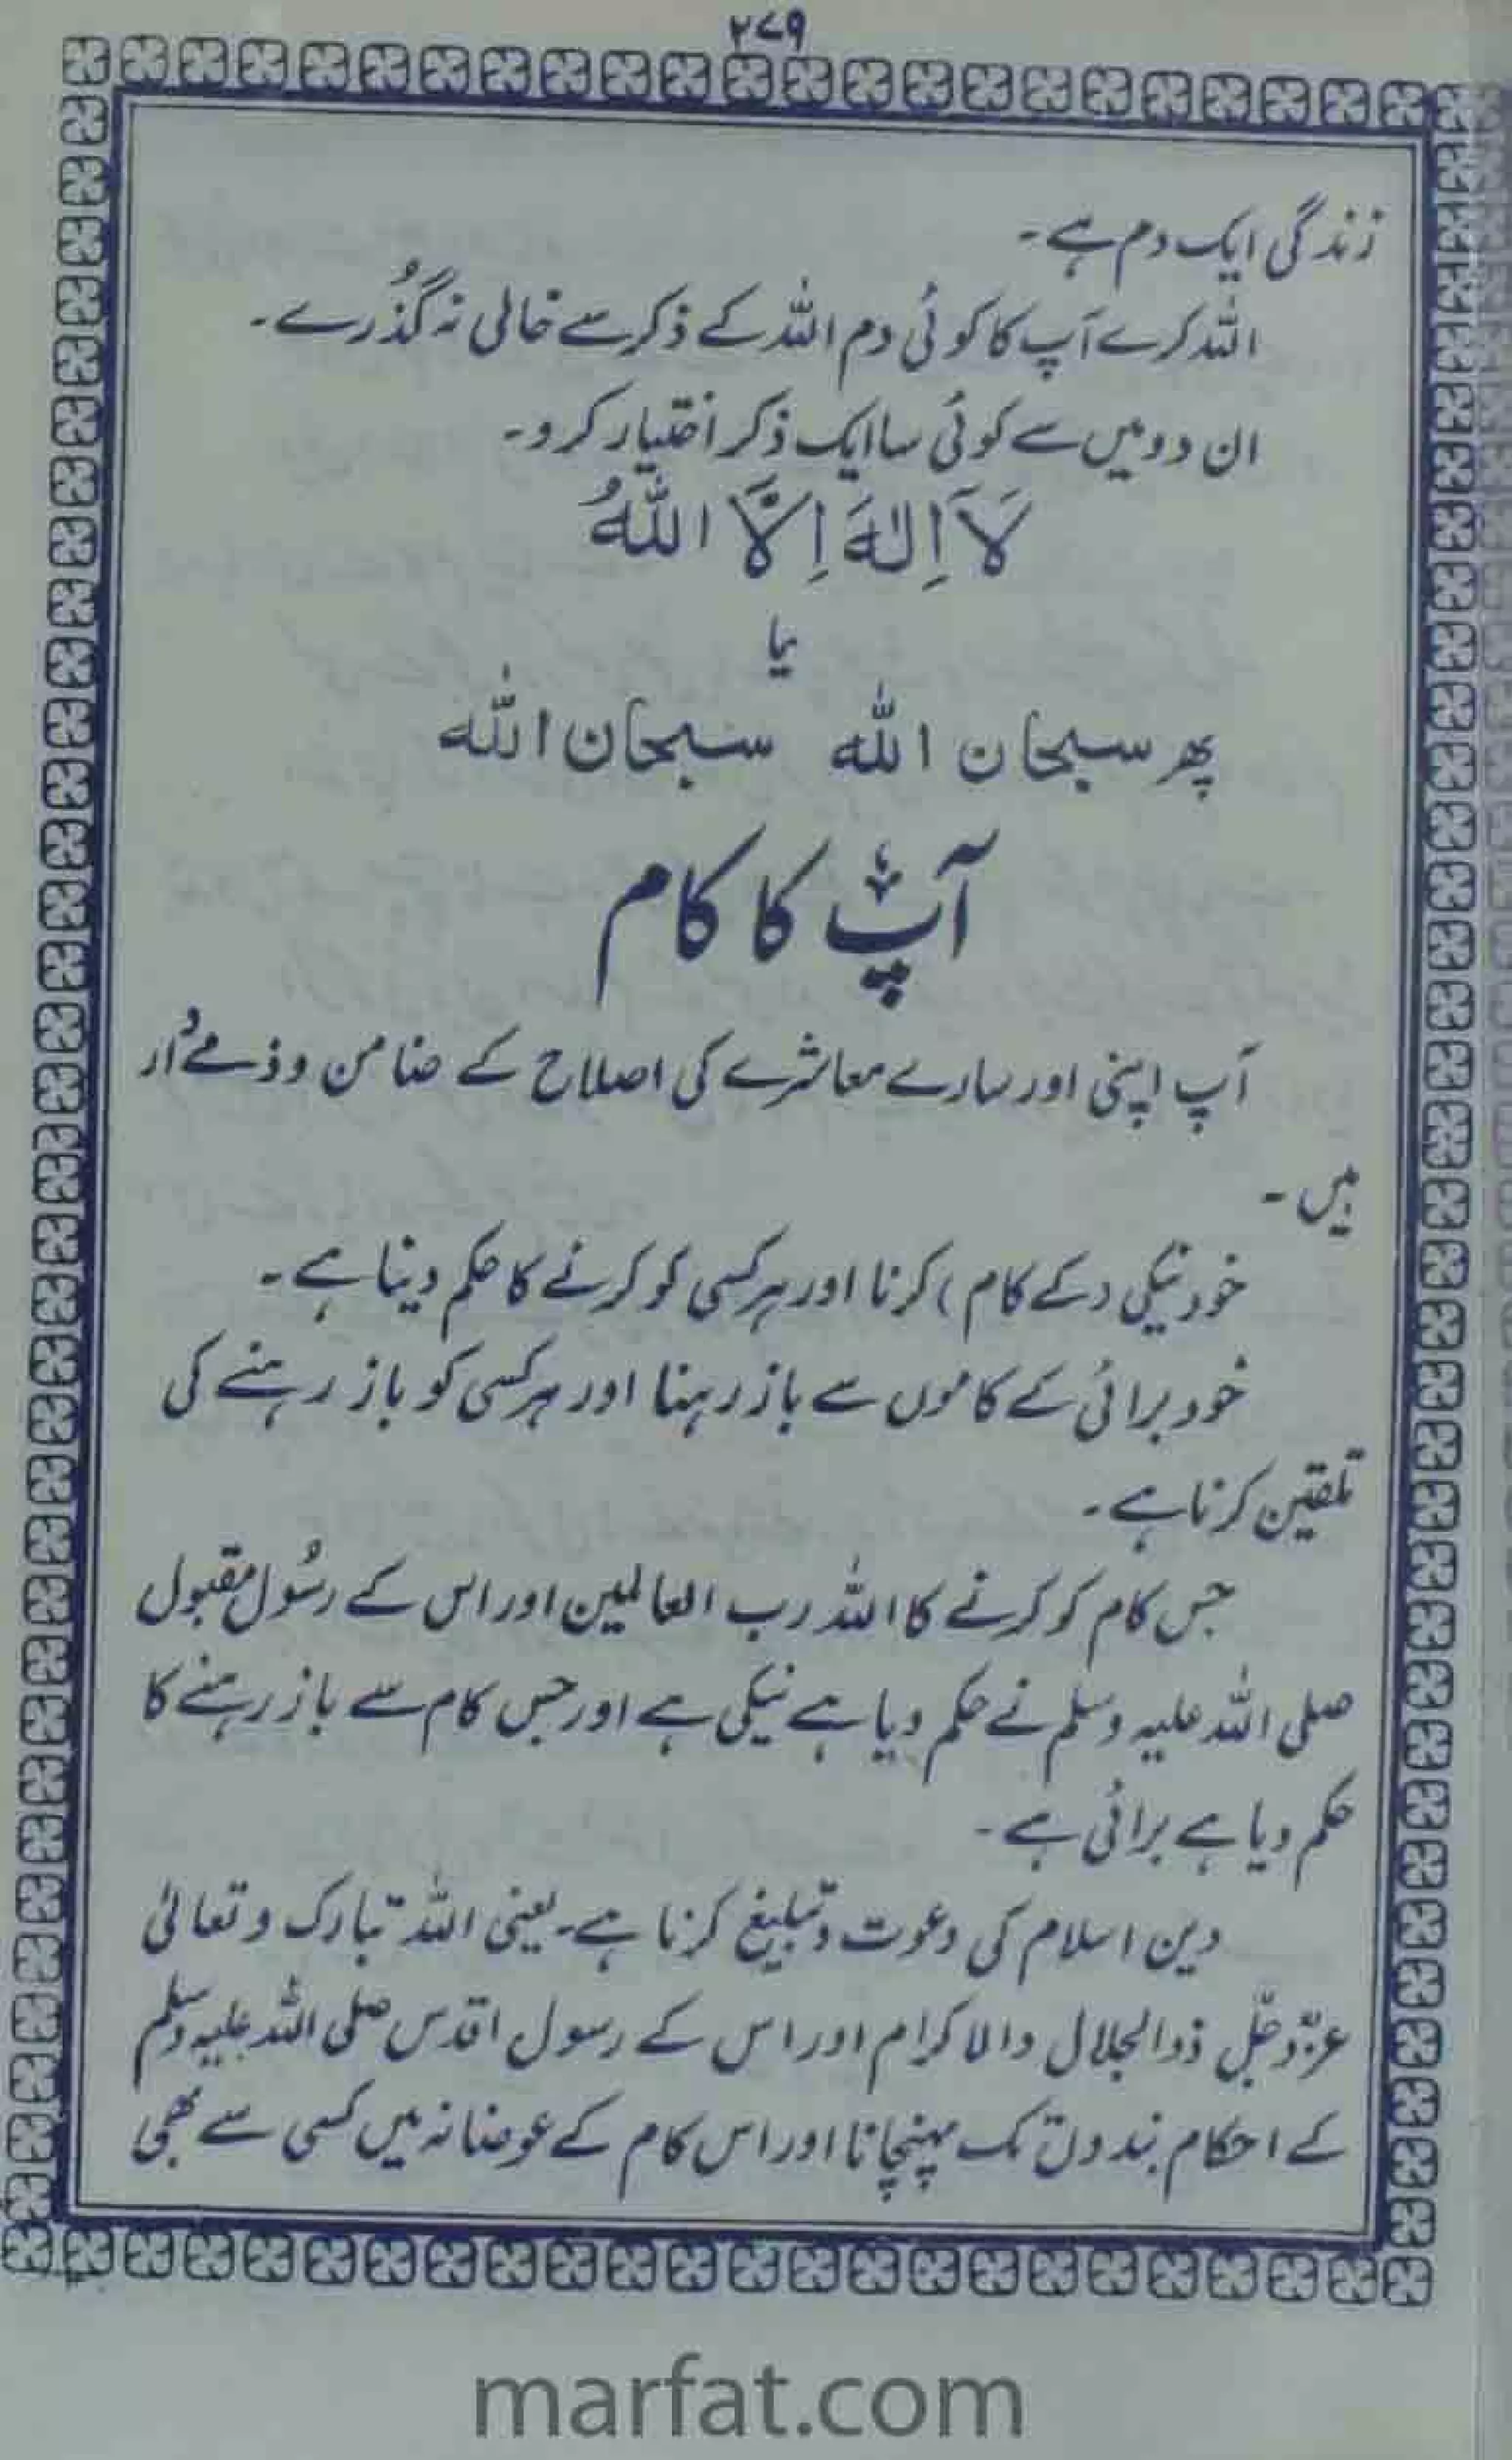 ۲۷۹
زندگی ایک دم ہے۔
اللہ کرے آپ کا کوئی دم اللہ کے ذکر سے خالی نہ گذُرے۔
ان دو میں سے کوئی سا ایک ذکر اختیار کرو۔
لَآ اِلٰہَ اِلَّا اللّٰہُ
یا
پھر سبحان اللّٰہ سبحان اللّٰہ
آپ کا کام
آپ اپنی اور سارے معاشرے کی اصلاح کے ضامن و ذمےُ دار
ہیں۔
خود نیکی (کے کام) کرنا اور ہر کسی کو کرنے کا حکم دینا ہے۔
خود برائی کے کاموں سے باز رہنا اور ہر کسی کو باز رہنے کی
تلقین کرنا ہے۔
جس کام کو کرنے کا اللہ رب العالمین اور اس کے رسُول مقبول
صلی اللہ علیہ وسلم نے حکم دیا ہے نیکی ہے اور جس کام سے باز رہنے کا
حکم دیا ہے برائی ہے۔
دین اسلام کی دعوت و تبلیغ کرنا ہے۔ یعنی اللہ تبارک و تعالیٰ
عزّوجلّ ذوالجلال والاکرام اور اس کے رسول اقدس صلی اللہ علیہ وسلم
کے احکام بندوں تک پہنچانا اور اس کام کے عوضانہ میں کسی سے بھی
marfat.com